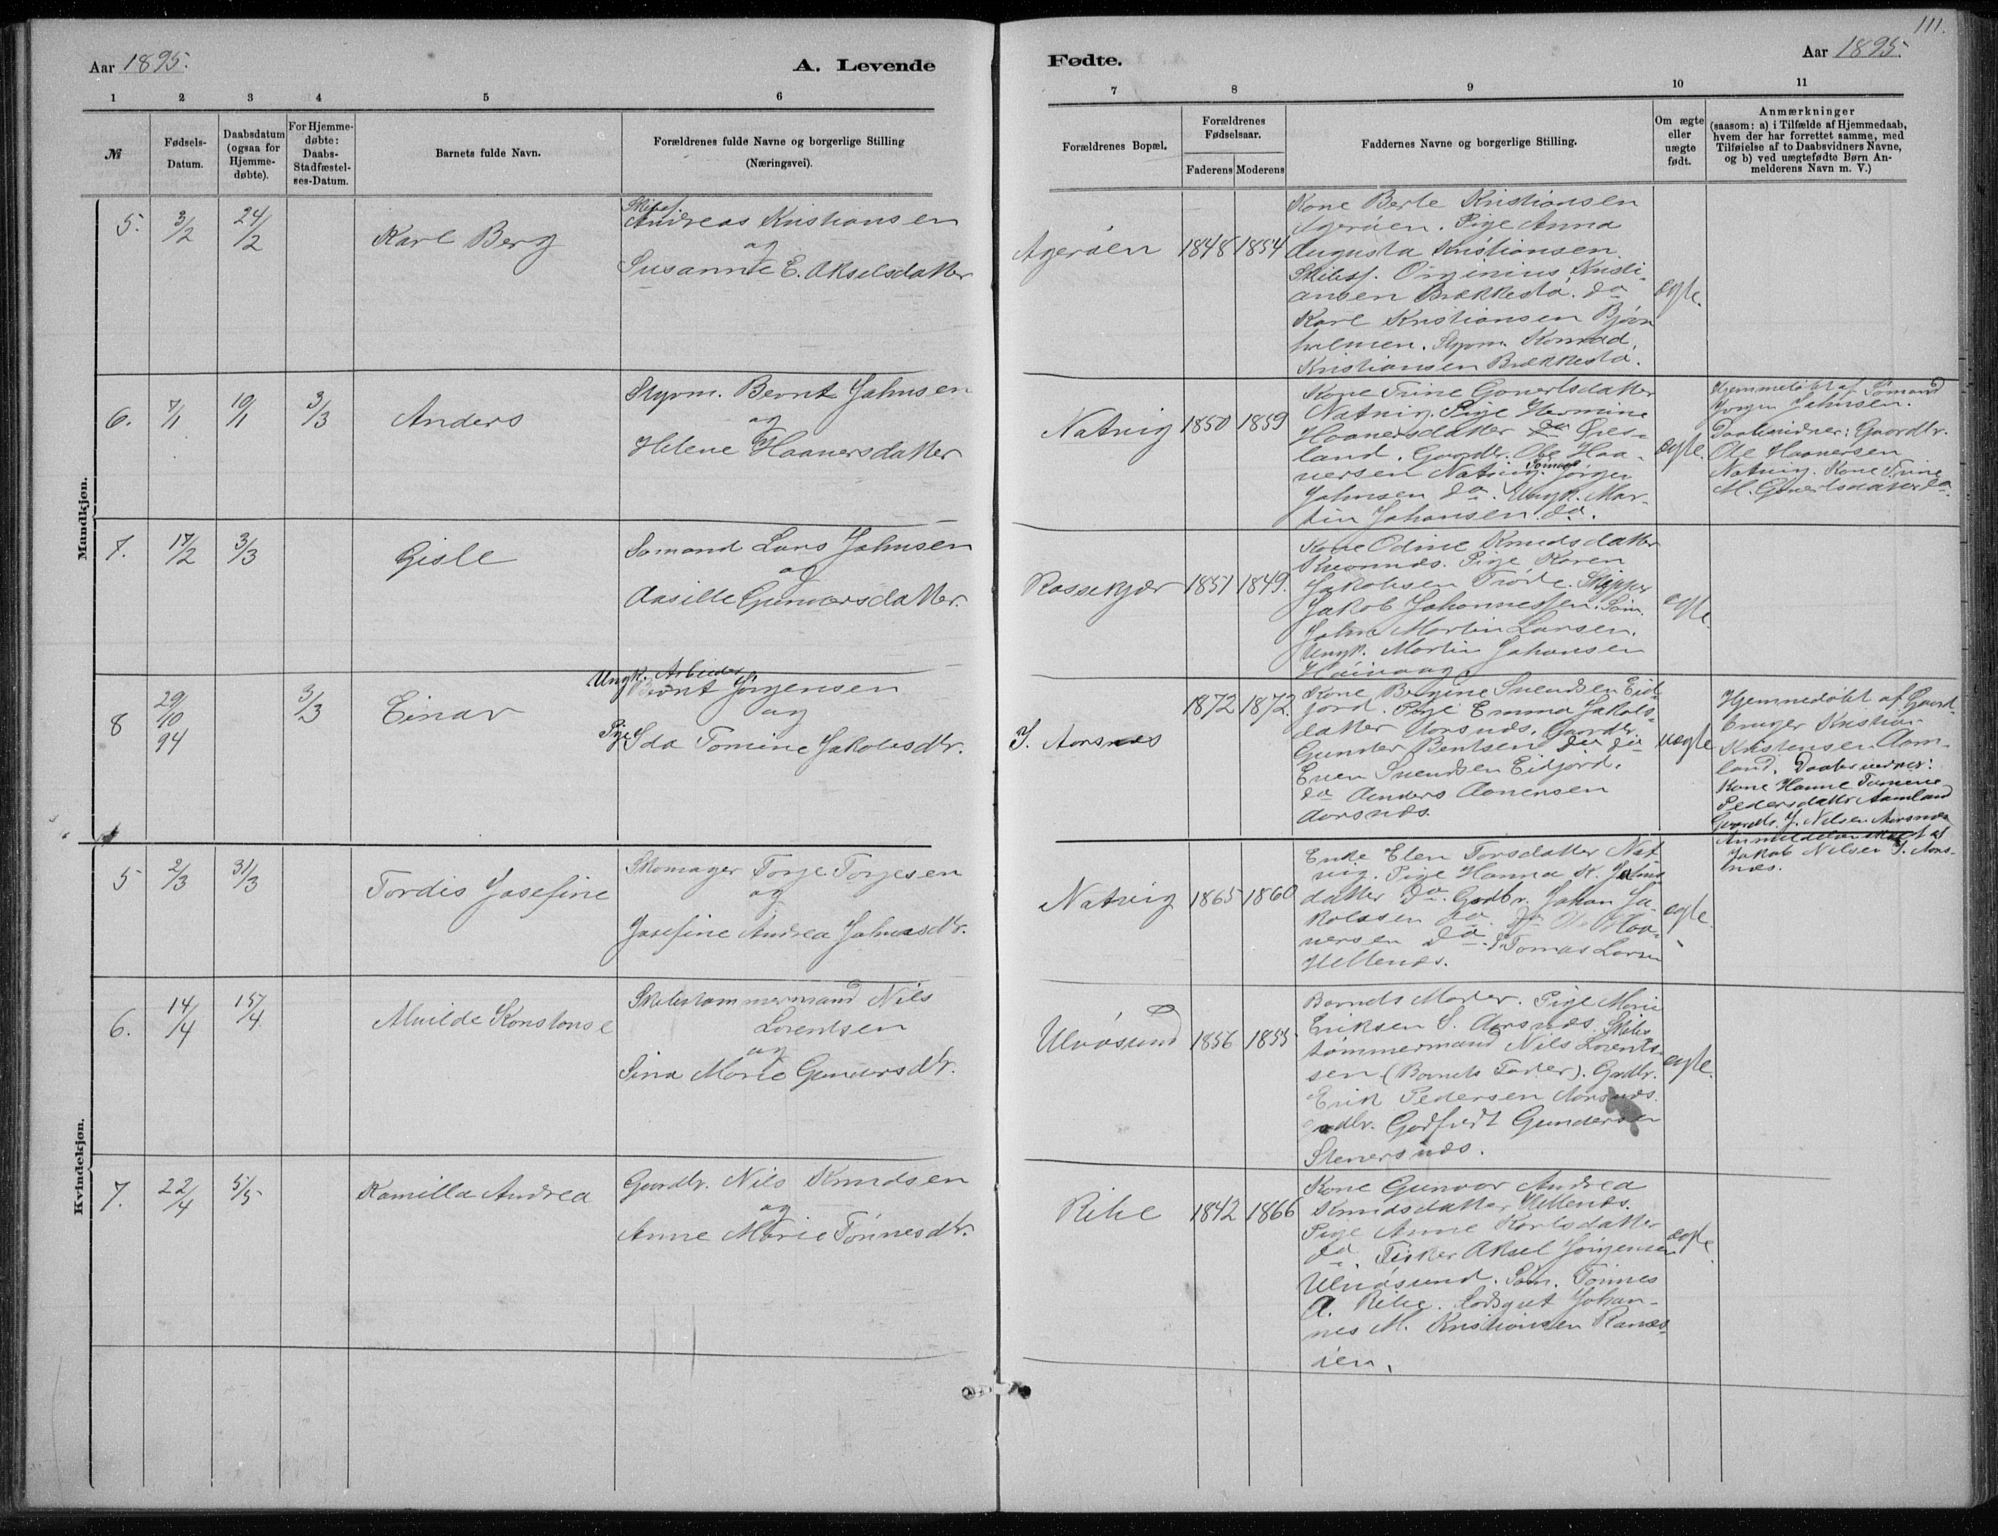 111.
Aar 1895.
A. Levende
Fødte.
Aar 1895.
1 2 3 4 5 6 7 8 9 10 11
№
Fødsels-Datum.
Daabsdatum (ogsaa for Hjemme-døbte).
For Hjemme-døbte: Daabs-Stadfæstel-ses-Datum.
Barnets fulde Navn.
Forældrenes fulde Navne og borgerlige Stilling
(Næringsvei).
Forældrenes Bopæl.
Forældrenes Fødselsaar.
Faderens Moderens
Faddernes Navne og borgerlige Stilling.
Om ægte eller uægte født.
Anmærkninger
(saasom: a) i Tilfælde af Hjemmedaab,
hvem der har forrettet samme, med
Tilføielse af to Daabsvidners Navne,
og b) ved uægtefødte Børn An-
melderens Navn m. V.)
Mandkjøn.
5. 3/2 24/2
Karl Berg
Skibsf.
Andreas Kristiansen
og
Susanne E. Akselsdatter
Agerøen 1848 1854
Kone Berte Kristiansen
Agerøen. Pige Anna
Augusta Kristiansen.
Skibsf. Orginius Kristi-
ansen Brækkestø. do
Karl Kristiansen Bjørn
holmen. Styrm. Konrad
Kristiansen Brækkestø.
ægte.
6. 7/1 10/1 3/3
Anders
Styrm. Bernt Jahnsen
og
Helene Haanersdatter
Natvig 1850 1859
Kone Trine Govertsdatter
Natvig. Pige Hermine
Haanersdatter do Øres-
land. Gaardbr. Ole Haa-
nersen Natvig. Sømand Jørgen
Jahnsen do. Ungk. Mar-
tin Johansen do.
ægte.
Hjemmedøbt af Sømand
Jørgen Jahnsen.
Daabsvidner: Gaardbr.
Ole Haanersen
Natvig. Kone Trine
M. Govertsdatter do
7. 17/2 3/3
Gisle
Sømand Lars Jahnsen
og
Aasille Gunnersdatter.
Rossekjær 1851 1849.
Kone Odine Knudsdatter
Pige Karen
Jakobsen Trøde. Skipper
Jakob Johannessen. Søm.
John Martin Larsen.
Ungk. Martin Johansen
Høivaag.
ægte
8 29/10 94 3/3
Einar
Ungk. Arbeider
Bernt Jørgensen
og
Pige Ida Tomine Jakobsdtr.
Y. Aarsnes 1872 1872.
Kone Bergine Svendsen Eid-
jord. Pige Emma Jakobs-
datter Aarsnæs. Gardbr.
Gunder Bentsen do do
Even Svendsen Eidjord.
do Anders Aanensen
Aarsnæs.
uægte
Hjemmedøbt af Gaard-
bruger Kristian
Kristensen Aam-
land. Daabsvidner:
Kone Hanne Tomine
Pedersdatter Aamland
Gaardb. J. Nilsen Aarsnæs
Anmeldelsen skedt af
Jakob Nilsen Y. Aars-
næs.
Kvindekjøn.
5 2/3 31/3
Tordis Josefine
Skomager Torje Torjesen
og
Josefine Andrea Jahnsdtr.
Natvig 1865 1860
Enke Elen Torsdatter Nat-
vig. Pige Hanna K. Jahns
datter do. Gardbr. Johan Ja-
kobssen do. do Ole Haa-
nersen do. Tomas Larsen
Hellenæs.
ægte.
6. 14/4 15/4
Alvilde Konstanse
Skibstømmermand Nils
Lorentsen
og
Sina Marie Gundersdtr.
Ulvøsund 1856 1855
Barnets Moder. Pige Marie
Eriksen S. Aarsnæs. Skibs
tømmermand Nils Lorent-
sen (Barnets Fader). Gardbr.
Erik Pedersen Aarsnæs.
Gardbr. Godfredt Gundersen
Stenersnæs.
ægte.
7. 22/4 5/5
Kamilla Andrea
Gaardbr. Nils Knudsen
og
Anne Marie Tønnesdtr.
Ribe 1842 1866
Kone Gunvor Andrea
Knudsdatter Hellenæs.
Pige Anne Karlsdatter
do. Fisker Aksel Jørgensen
Ulvøsund. Søm. Tønnes
A. Ribe. Lodsgut Johan-
nes M. Kristiansen Ranæs-
ien.
ægte.